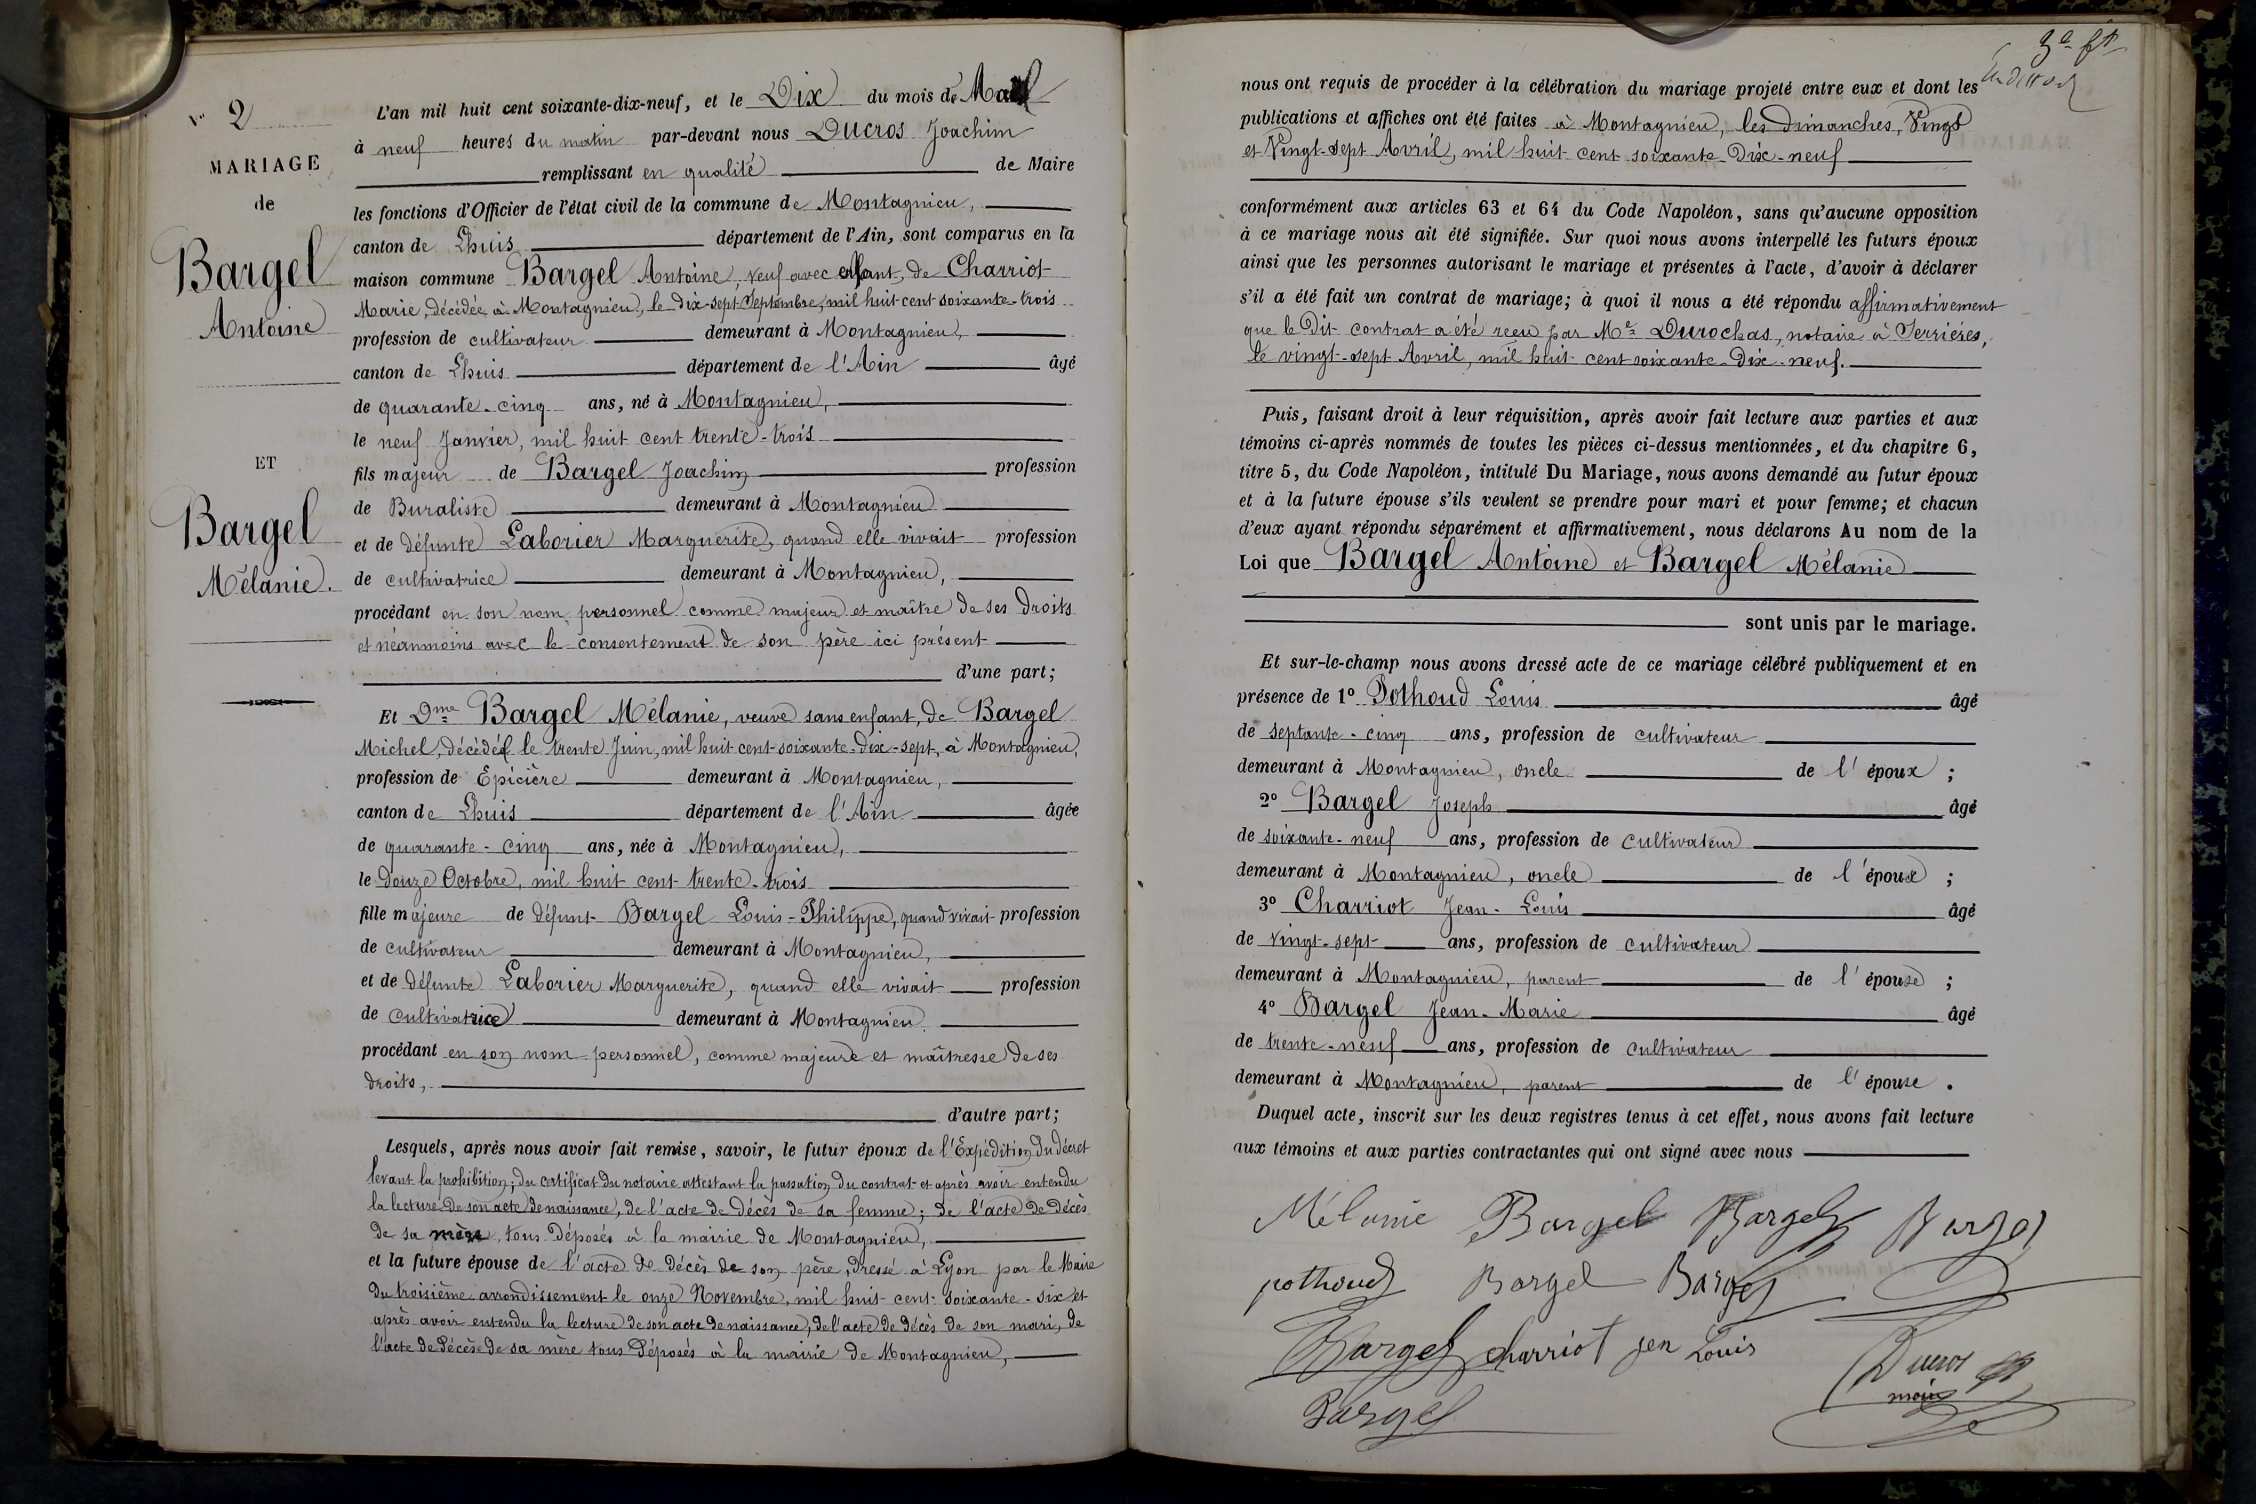 N° 2
MARIAGE
de
Bargel
Antoine
ET
Bargel
Mélanie.
L'an mil huit cent soixante-dix-neuf, et le Dix du mois de Mai
à neuf heures du matin par-devant nous Ducros Joachim
remplissant en qualité de Maire
les fonctions d'Officier de l'état civil de la commune de Montagnieu,
canton de Lhuis département de l'Ain, sont comparus en la
maison commune Bargel Antoine, veuf avec enfant, de Charriot
Marie, décédée à Montagnieu, le dix-sept Septembre, mil huit cent soixante-trois
profession de cultivateur demeurant à Montagnieu,
canton de Lhuis département de l'Ain âgé
de quarante-cinq ans, né à Montagnieu,
le neuf Janvier, mil huit cent trente-trois
fils majeur de Bargel Joachim profession
de Buraliste demeurant à Montagnieu
et de défunte Laborier Marguerite, quand elle vivait profession
de cultivatrice demeurant à Montagnieu,
procédant en son nom personnel comme majeur et maître de ses droits
et néanmoins avec le consentement de son père ici présent
d'une part;
Et Dme Bargel Mélanie, veuve sans enfant, de Bargel
Michel, décédé le trente Juin, mil huit cent-soixante-dix-sept, à Montagnieu,
profession de Epicière demeurant à Montagnieu,
canton de Lhuis département de l'Ain âgée
de quarante-cinq ans, née à Montagnieu,
le douze Octobre, mil huit cent trente-trois
fille majeure de défunt Bargel Louis-Philippe, quand vivait profession
de cultivateur demeurant à Montagnieu,
et de défunte Laborier Marguerite, quand elle vivait profession
de cultivatrice demeurant à Montagnieu
procédant en son nom personnel, comme majeure et maîtresse de ses
droits,
d'autre part;
Lesquels, après nous avoir fait remise, savoir, le futur époux de l'Expédition du décret
levant la prohibition; du certificat du notaire attestant la passation du contrat et après avoir entendu
la lecture de son acte de naissance, de l'acte de décès de sa femme; de l'acte de décès
de sa mère, tous déposés à la mairie de Montagnieu,
et la future épouse de l'acte de décès de son père, dressé à Lyon par le Maire
du troisième arrondissement le onze Novembre, mil huit cent soixante-six et
après avoir entendu la lecture de son acte de naissance, de l'acte de décès de son mari, de
l'acte de décès de sa mère tous déposés à la mairie de Montagnieu,
nous ont requis de procéder à la célébration du mariage projeté entre eux et dont les
publications et affiches ont été faites à Montagnieu, les dimanches, Vingt
et Vingt-sept Avril, mil huit cent soixante-Dix-neuf
conformément aux articles 63 et 64 du Code Napoléon, sans qu'aucune opposition
à ce mariage nous ait été signifiée. Sur quoi nous avons interpellé les futurs époux
ainsi que les personnes autorisant le mariage et présentes à l'acte, d'avoir à déclarer
s'il a été fait un contrat de mariage; à quoi il nous a été répondu affirmativement
que le dit contrat a été recu par Me Durochas, notaire à Serrières,
le vingt-sept Avril, mil huit cent soixante-Dix-neuf.
Puis, faisant droit à leur réquisition, après avoir fait lecture aux parties et aux
témoins ci-après nommés de toutes les pièces ci-dessus mentionnées, et du chapitre 6,
titre 5, du Code Napoléon, intitulé Du Mariage, nous avons demandé au futur époux
et à la future épouse s'ils veulent se prendre pour mari et pour femme; et chacun
d'eux ayant répondu séparément et affirmativement, nous déclarons Au nom de la
Loi que Bargel Antoine et Bargel Mélanie
sont unis par le mariage.
Et sur-le-champ nous avons dressé acte de ce mariage célébré publiquement et en
présence de 1° Pothoud Louis âgé
de septante-cinq ans, profession de cultivateur
demeurant à Montagnieu, oncle de l'époux ;
2° Bargel Joseph âgé
de soixante-neuf ans, profession de cultivateur
demeurant à Montagnieu, oncle de l'époux ;
3° Charriot Jean-Louis âgé
de vingt-sept ans, profession de cultivateur
demeurant à Montagnieu, parent de l'épouse ;
4° Bargel Jean-Marie âgé
de trente-neuf ans, profession de cultivateur
demeurant à Montagnieu, parent de l'épouse .
Duquel acte, inscrit sur les deux registres tenus à cet effet, nous avons fait lecture
aux témoins et aux parties contractantes qui ont signé avec nous
Mélanie Bargel Bargel Bargel
pothoud Bargel Bargel
Bargel charriot jen Louis
Ducros
maire
Bargel